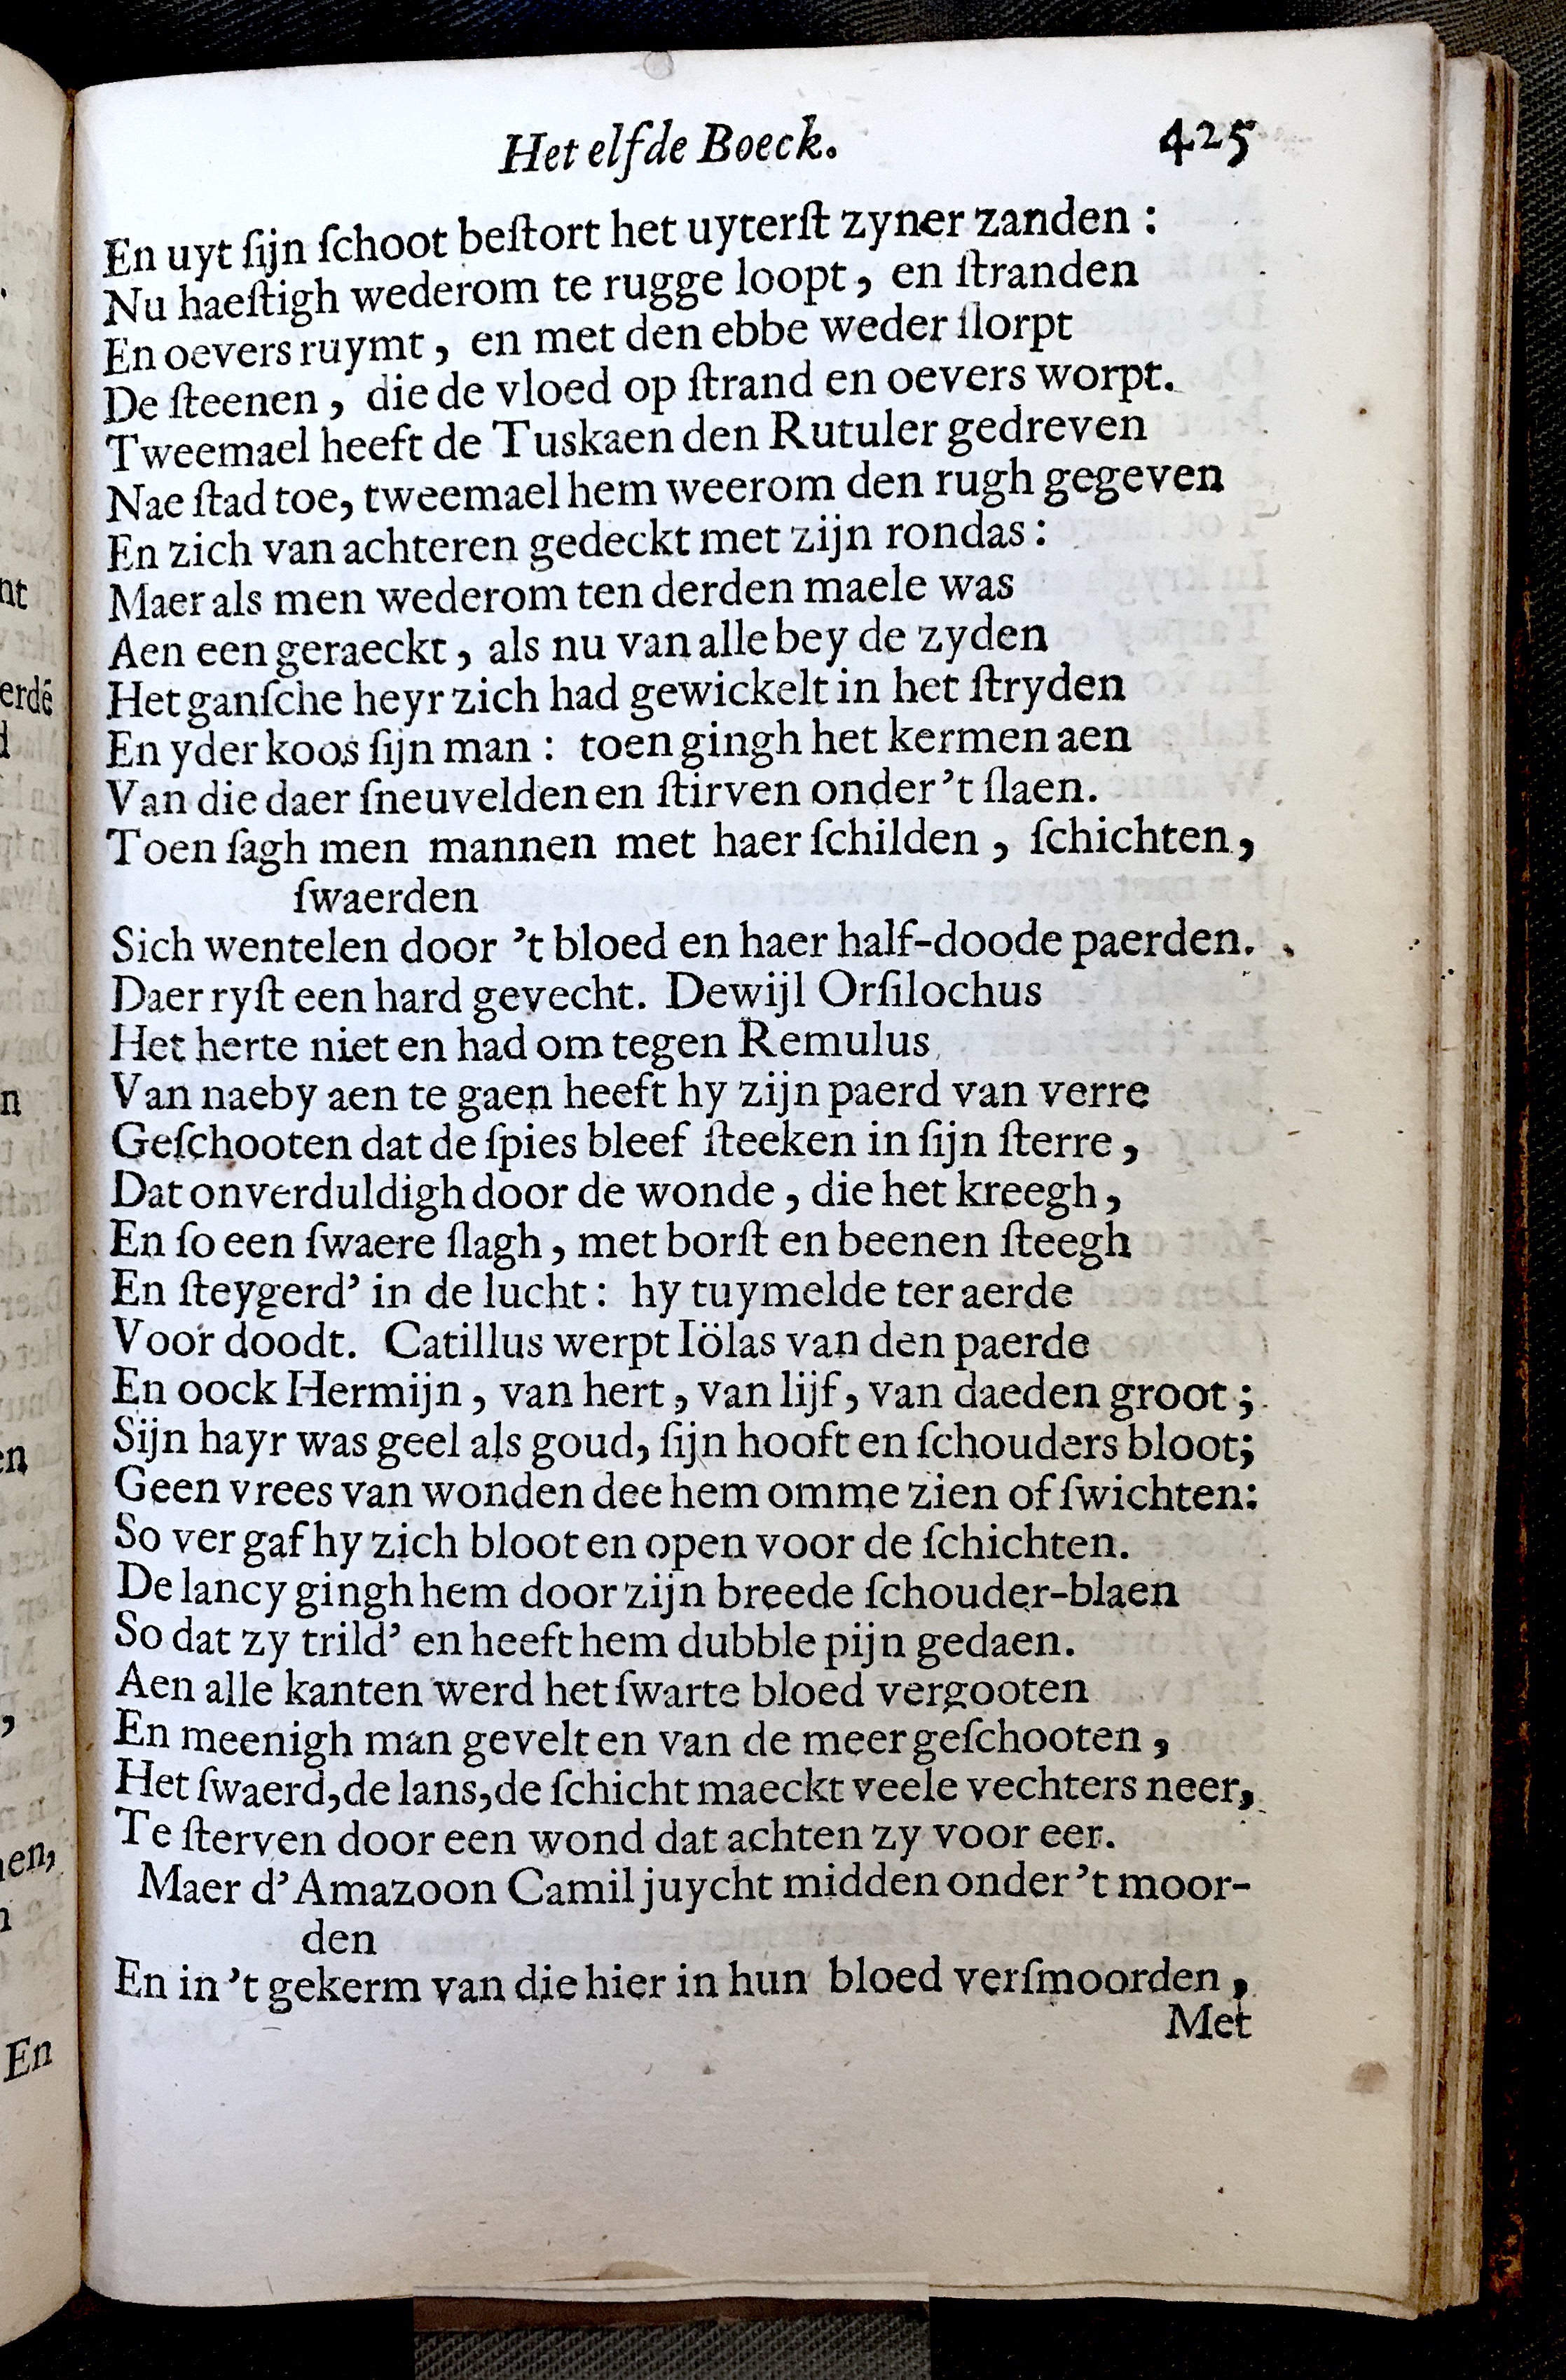 Het elfde Boeck. 425
En uyt ſijn ſchoot beſtort het uyterſt zyner zanden :
Nu haeſtigh wederom te rugge loopt , en ſtranden
En oevers ruymt , en met den ebbe weder ſlorpt
De ſteenen , die de vloed op ſtrand en oevers worpt.
Tweemael heeft de Tuskaen den Rutuler gedreven
Nae ſtad toe, tweemael hem weerom den rugh gegeven
En zich van achteren gedeckt met zijn rondas :
Maer als men wederom ten derden maele was
Aen een geraeckt , als nu van alle bey de zyden
Het ganſche heyr zich had gewickelt in het ſtryden
En yder koos ſijn man : toen gingh het kermen aen
Van die daer ſneuvelden en ſtirven onder 't ſlaen.
Toen ſagh men mannen met haer ſchilden , ſchichten,
ſwaerden
Sich wentelen door 't bloed en haer half-doode paerden.
Daer ryſt een hard gevecht. Dewijl Orſilochus
Het herte niet en had om tegen Remulus
Van naeby aen te gaen heeft hy zijn paerd van verre
Geſchooten dat de ſpies bleef ſteeken in ſijn ſterre ,
Dat onverduldigh door de wonde , die het kreegh ,
En ſo een ſwaere ſlagh , met borſt en beenen ſteegh
En ſteygerd' in de lucht : hy tuymelde ter aerde
Voor doodt. Catillus werpt Iölas van den paerde
En oock Hermijn , van hert , van lijf , van daeden groot ;
Sijn hayr was geel als goud, ſijn hooft en ſchouders bloot;
Geen vrees van wonden dee hem omme zien of ſwichten:
So ver gaf hy zich bloot en open voor de ſchichten.
De lancy gingh hem door zijn breede ſchouder-blaen
So dat zy trild' en heeft hem dubble pijn gedaen.
Aen alle kanten werd het ſwarte bloed vergooten
En meenigh man gevelt en van de meer geſchooten ,
Het ſwaerd,de lans,de ſchicht maeckt veele vechters neer,
Te ſterven door een wond dat achten zy voor eer.
Maer d'Amazoon Camil juycht midden onder 't moor-
den
En in 't gekerm van die hier in hun bloed verſmoorden ,
Met
nt
erdé
n
en
En